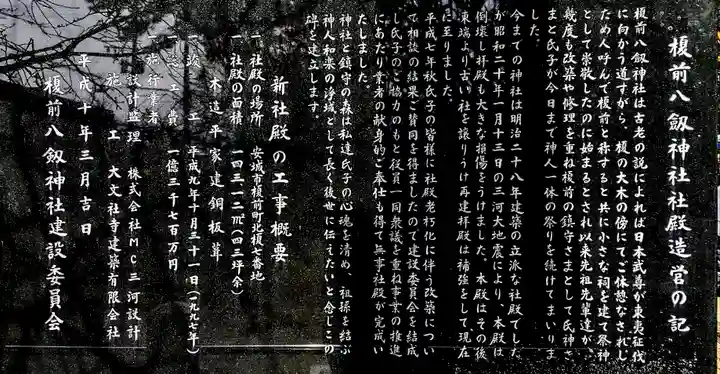 榎前八劔神社社殿造営の記
榎前八劔神社は古老の説によれば日本武尊が東夷征伐
に向かう道すがら、榎の大木の傍にてご休憩なされし
ため人呼んで榎前と称すると共に小さな祠を建て祭神
として崇敬したのに始まるとされ以来先祖先輩達が、
幾度も改築や修理を重ね榎前の鎮守さまとして氏神さ
まと氏子が今日まで神人一体の祭りを続けてまいりま
した。
今までの神社は明治二十八年建築の立派な社殿でした
が昭和二十年一月十三日の三河大地震により、本殿は
倒壊し拝殿も大きな損傷をうけました。本殿はその後
東端より古い社を譲りうけ再建拝殿は補強をして現在
に至りました。
平成七年秋氏子の皆様に社殿老朽化に伴う改築につい
て相談の結果ご賛同を得ましたので建設委員会を結成
し氏子のご協力のもと役員一同衆議を重ね事業の推進
にあたり業者の献身的ご奉仕も得て無事社殿が完成い
たしました
神社と鎮守の森は私達氏子の心魂を清め、祖孫を結ぶ
神人和楽の浄域として長く後世に伝えたいと念じこの
碑を建立します。
新社殿の工事概要
一社殿の場所　安城市榎前町北榎七番地
一社殿の面積　一四三・一二㎡(四三坪余)
木造平家建銅板葺
一竣工　平成九年十月三十一日(一九九七年)
一総工費　一億三千七百万円
一施行業者
設計監理　株式会社MC三河設計
施工　大文社寺建築有限会社
平成十年三月吉日
榎前八劔神社建設委員会